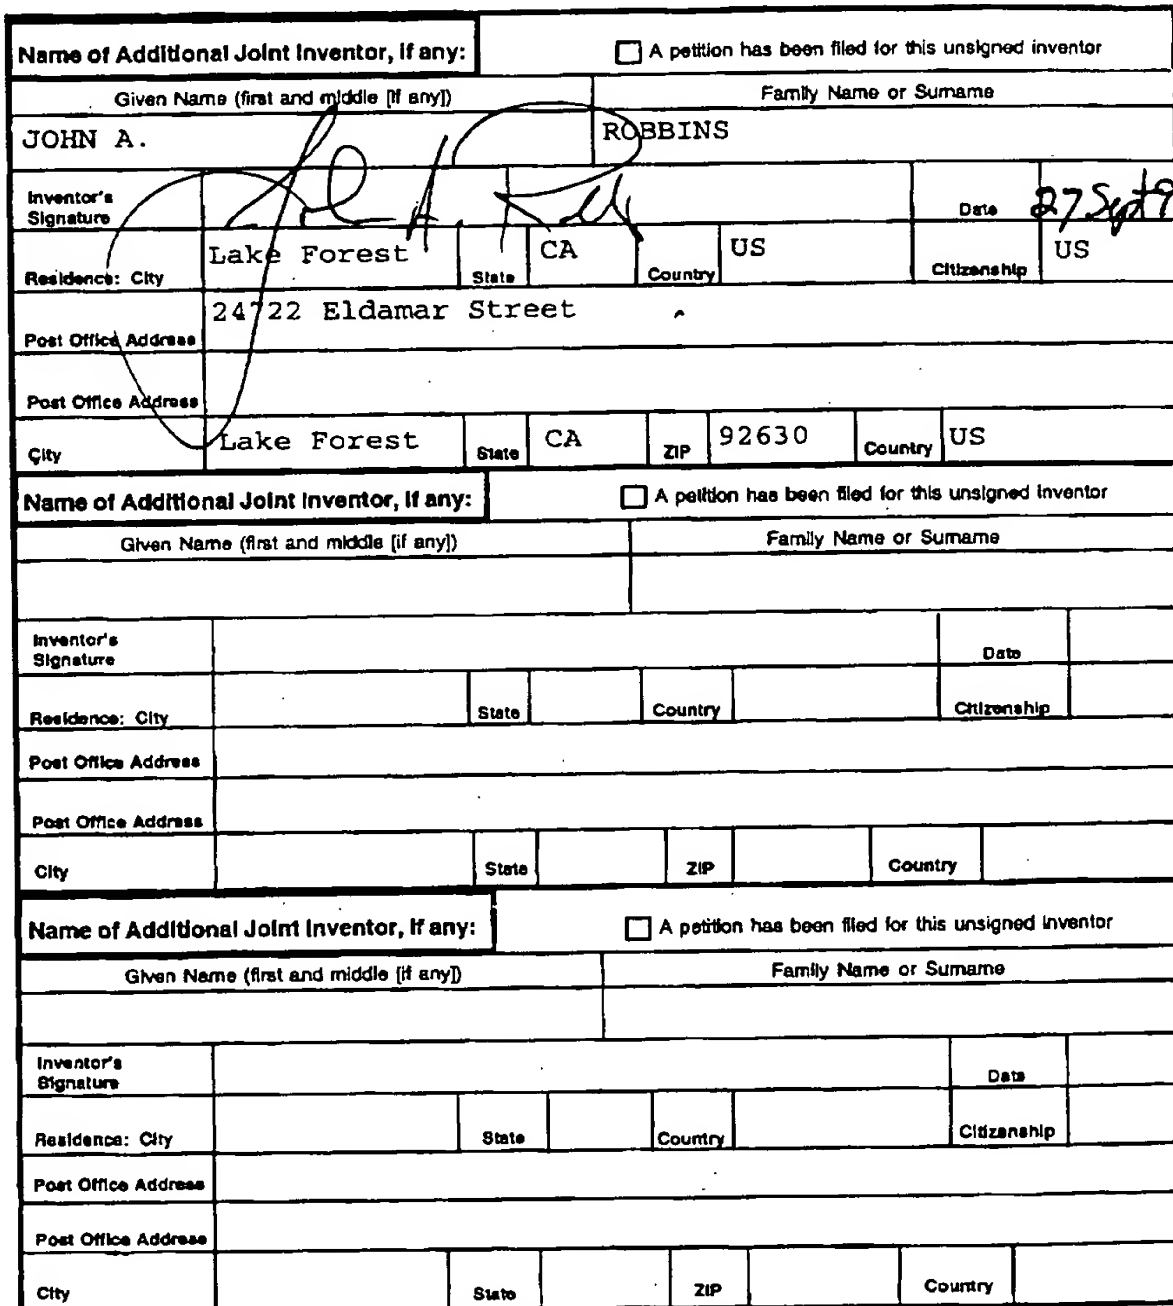 Name of Additional Joint Inventor, if any: A petition has been filed for this unsigned inventor
Given Name (first and middle [if any]) Family Name or Surname
JOHN A. ROBBINS
Inventor's Signature Date 27 Sept 9
Residence: City Lake Forest State CA Country US Citizenship US
Post Office Address 24722 Eldamar Street
Post Office Address
City Lake Forest State CA ZIP 92630 Country US
Name of Additional Joint Inventor, if any: A petition has been filed for this unsigned inventor
Given Name (first and middle [if any]) Family Name or Surname
Inventor's Signature Date
Residence: City State Country Citizenship
Post Office Address
Post Office Address
City State ZIP Country
Name of Additional Joint Inventor, if any: A petition has been filed for this unsigned inventor
Given Name (first and middle [if any]) Family Name or Surname
Inventor's Signature Date
Residence: City State Country Citizenship
Post Office Address
Post Office Address
City State ZIP Country